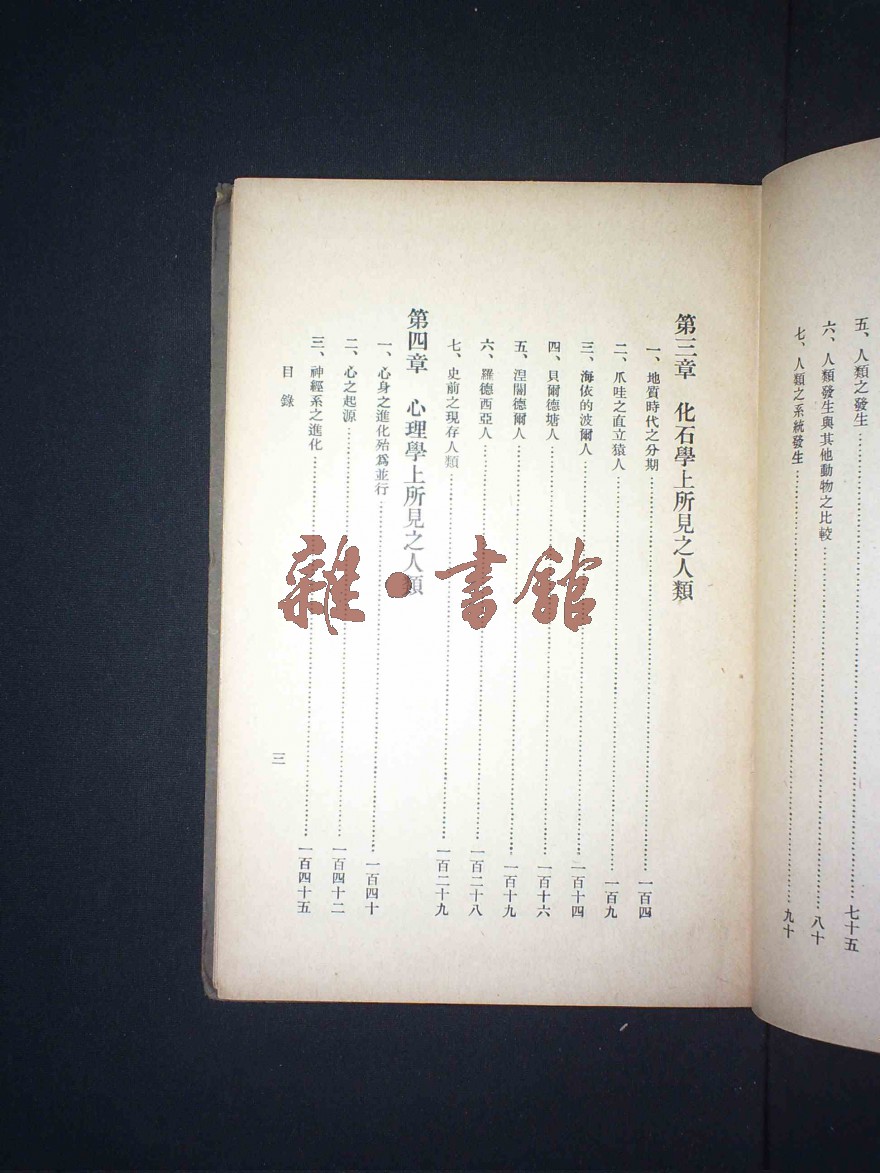 五、人類之發生……七十五
六、人類發生與其他動物之比較……八十
七、人類之系統發生……九十
第三章　化石學上所見之人類
一、地質時代之分期……一百四
二、爪哇之直立猿人……一百九
三、海依的波爾人……一百十四
四、貝爾德塘人……一百十六
五、湼闍德爾人……一百十九
六、羅德西亞人……一百二十八
七、史前之現存人類……一百二十九
第四章　心理學上所見之人類
一、心身之進化殆爲並行……一百四十
二、心之起源……一百四十二
三、神經系之進化……一百四十五
目錄
三
雜·書館